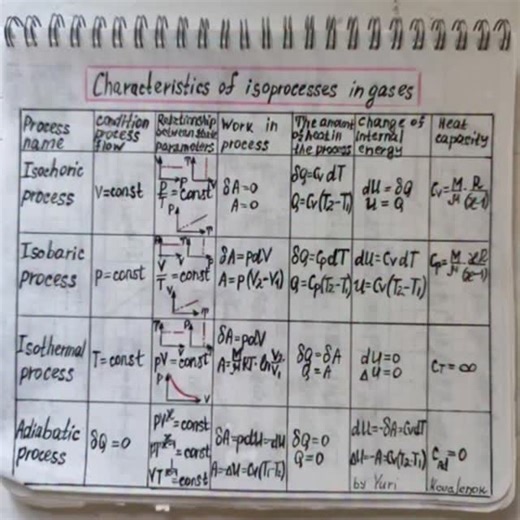 Characteristics of isoprocesses in gases
Process name
condition process flow
Relationship between state parameters
Work in process
The amount of heat in the process
Change of internal energy
Heat capacity
Isochoric process
V=const
P/T = const
δA=0
A=0
δQ=CvdT
Q=Cv(T₂-T₁)
dU=δQ
U=Q
Cv=M/μ·R/(æ-1)
Isobaric process
P=const
V/T = const
δA=pdV
A=P(V₂-V₁)
δQ=CpdT
Q=Cp(T₂-T₁)
dU=CvdT
U=Cv(T₂-T₁)
Cp=M/μ·æR/(æ-1)
Isothermal process
T=const
pV=const
δA=pdV
A=M/μ RT·ln V₂/V₁
δQ=δA
Q=A
dU=0
ΔU=0
Cт=∞
Adiabatic process
δQ=0
=const
=const
=const
δA=pdU=-dU
A=-ΔU=Cv(T₁-T₂)
δQ=0
Q=0
dU=-δA=CvdT
ΔU=-A=Cv(T₂-T₁)
Cad=0
by Yuri Kovalenok